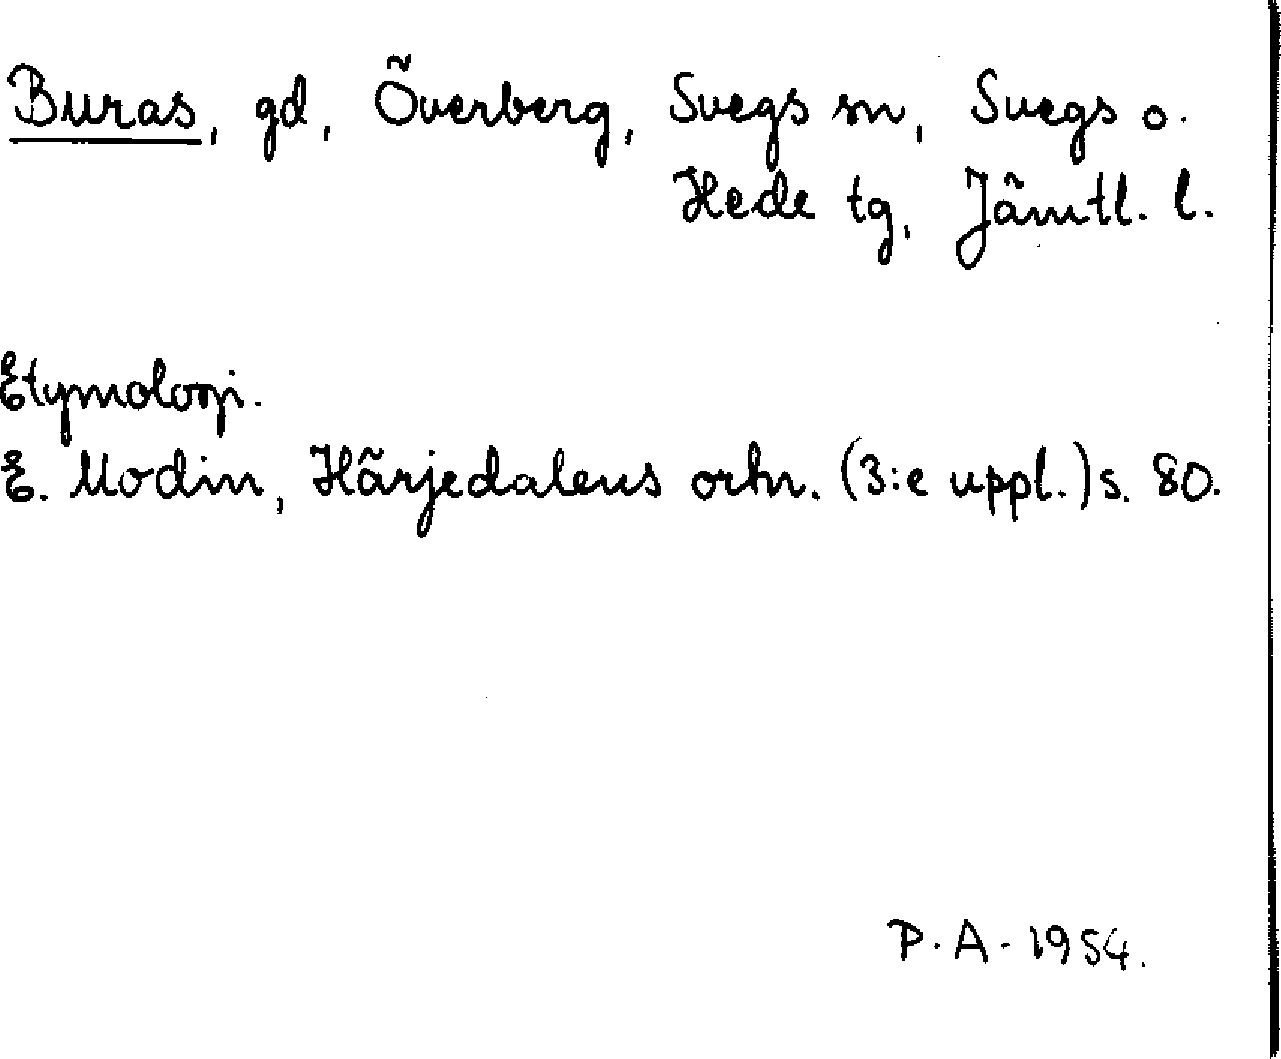 Buras, gd, Överberg, Svegs sn, Svegs o.
Hede tg, Jämtl. l.
Etymologi.
E. Modin, Härjedalens ortn. (3:e uppl.) s. 80.
P. A. 1954.